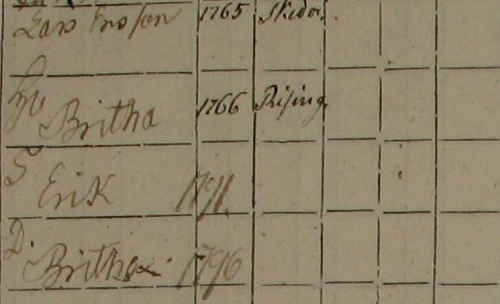 Lars Ersson 1765 Skedvi.
Hu
Britha 1766 Risinge
S
Erik 1791.
D.
Britha 1796